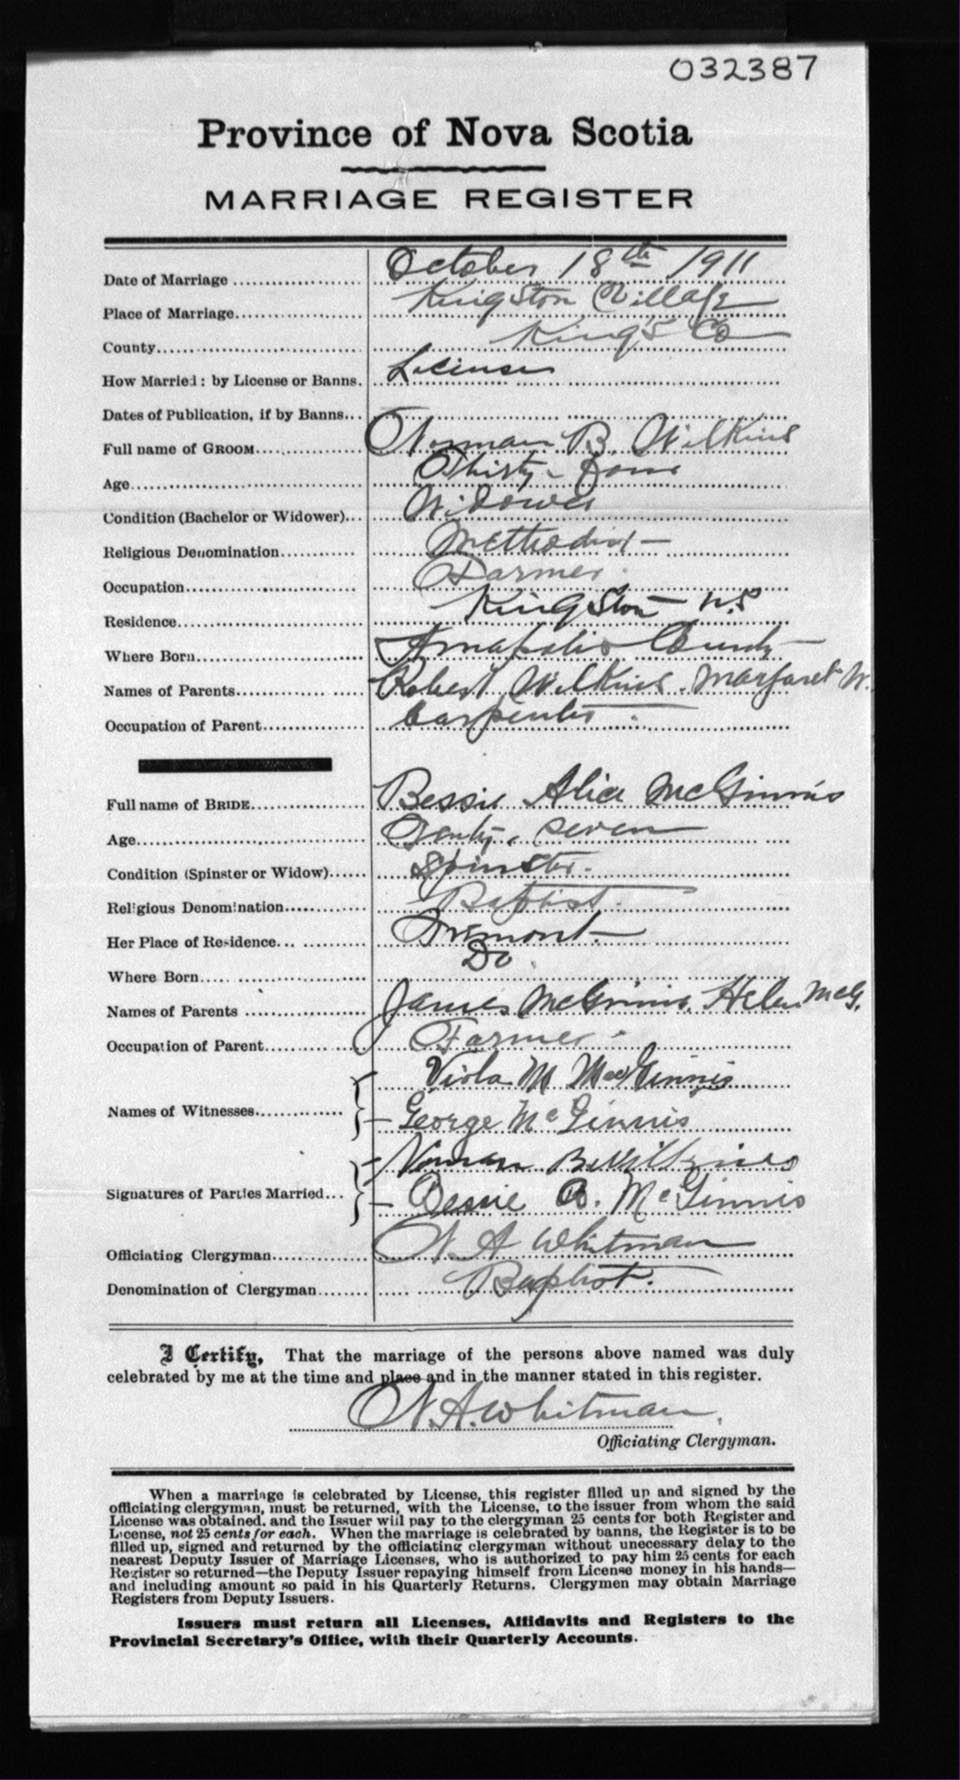 032387
Province of Nova Scotia
MARRIAGE REGISTER
Date of Marriage October 18th 1911
Place of Marriage Kingston Village
County King's Co
How Married: by License or Banns. License
Dates of Publication, if by Banns
Full name of GROOM Norman B. Wilkins
Age Thirty-four
Condition (Bachelor or Widower) Widower
Religious Denomination Methodist
Occupation Farmer.
Residence Kingston N.S
Where Born Annapolis County
Names of Parents Robert Wilkins. Margaret W.
Occupation of Parent Carpenter.
Full name of BRIDE Bessie Alice McGinnis
Age Twenty-seven
Condition (Spinster or Widow) Spinster.
Religious Denomination Baptist.
Her Place of Residence Tremont.
Where Born Do.
Names of Parents James McGinnis. Helen McG.
Occupation of Parent Farmer
Names of Witnesses Viola M MacGinnis
George McGinnis
Signatures of Parties Married Norman B Wilkins
Bessie McGinnis
Officiating Clergyman N A Whitman
Denomination of Clergyman Baptist.
I Certify, That the marriage of the persons above named was duly
celebrated by me at the time and place and in the manner stated in this register.
N.A. Whitman.
Officiating Clergyman.
When a marriage is celebrated by License, this register filled up and signed by the
officiating clergyman, must be returned, with the License, to the issuer from whom the said
License was obtained, and the Issuer will pay to the clergyman 25 cents for both Register and
License, not 25 cents for each. When the marriage is celebrated by banns, the Register is to be
filled up, signed and returned by the officiating clergyman without unecessary delay to the
nearest Deputy Issuer of Marriage Licenses, who is authorized to pay him 25 cents for each
Register so returned—the Deputy Issuer repaying himself from License money in his hands—
and including amount so paid in his Quarterly Returns. Clergymen may obtain Marriage
Registers from Deputy Issuers.
Issuers must return all Licenses, Affidavits and Registers to the
Provincial Secretary's Office, with their Quarterly Accounts.